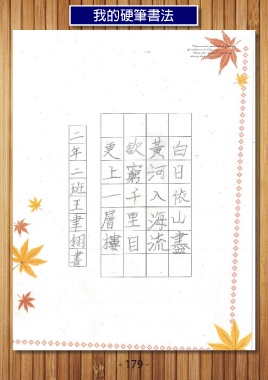 我的硬筆書法
白日依山盡
黃河入海流
欲窮千里目
更上一層樓
二年二班王聿翎書
- 179 -